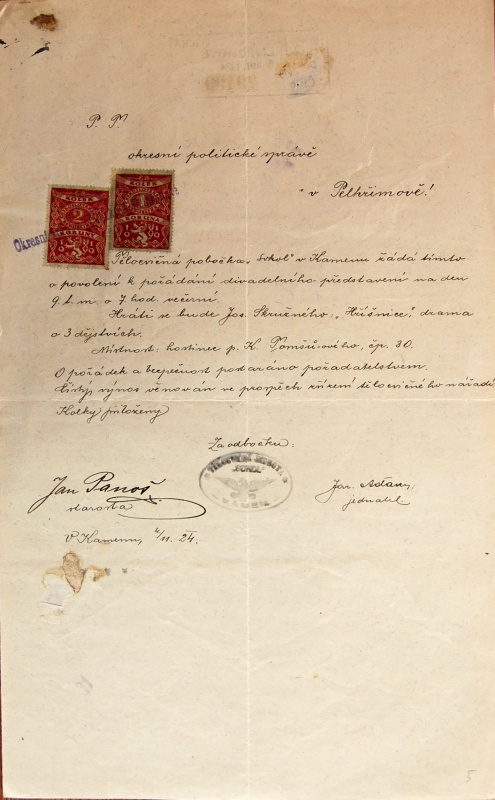 P. T.
okresní politické správě
v Pelhřimově!
KOLEK
2
KORUNA
KOLEK
1
KORUNA
Okresní
Tělocvičná pobočka „Sokol" v Kamenu žádá tímto
o povolení k pořádání divadelního představení na den
9. t. m. o 7 hod. večerní.
Hráti se bude Jos. Skružného: „Hříšnice", drama
o 3 dějstvích.
Místnost: hostinec p. K. čp. 30.
O pořádek a bezpečnost postaráno pořadatelstvem.
Čistý výnos věnován ve prospěch zřízení tělocvičného nářadí
Kolky přiloženy
Za odbočku:
TĚLOCVIČNÁ
„SOKOL"
KAMEN
Jan Panoš,
starosta
Jar. Adam,
jednatel
V Kamenu, 4/11. 24.
5